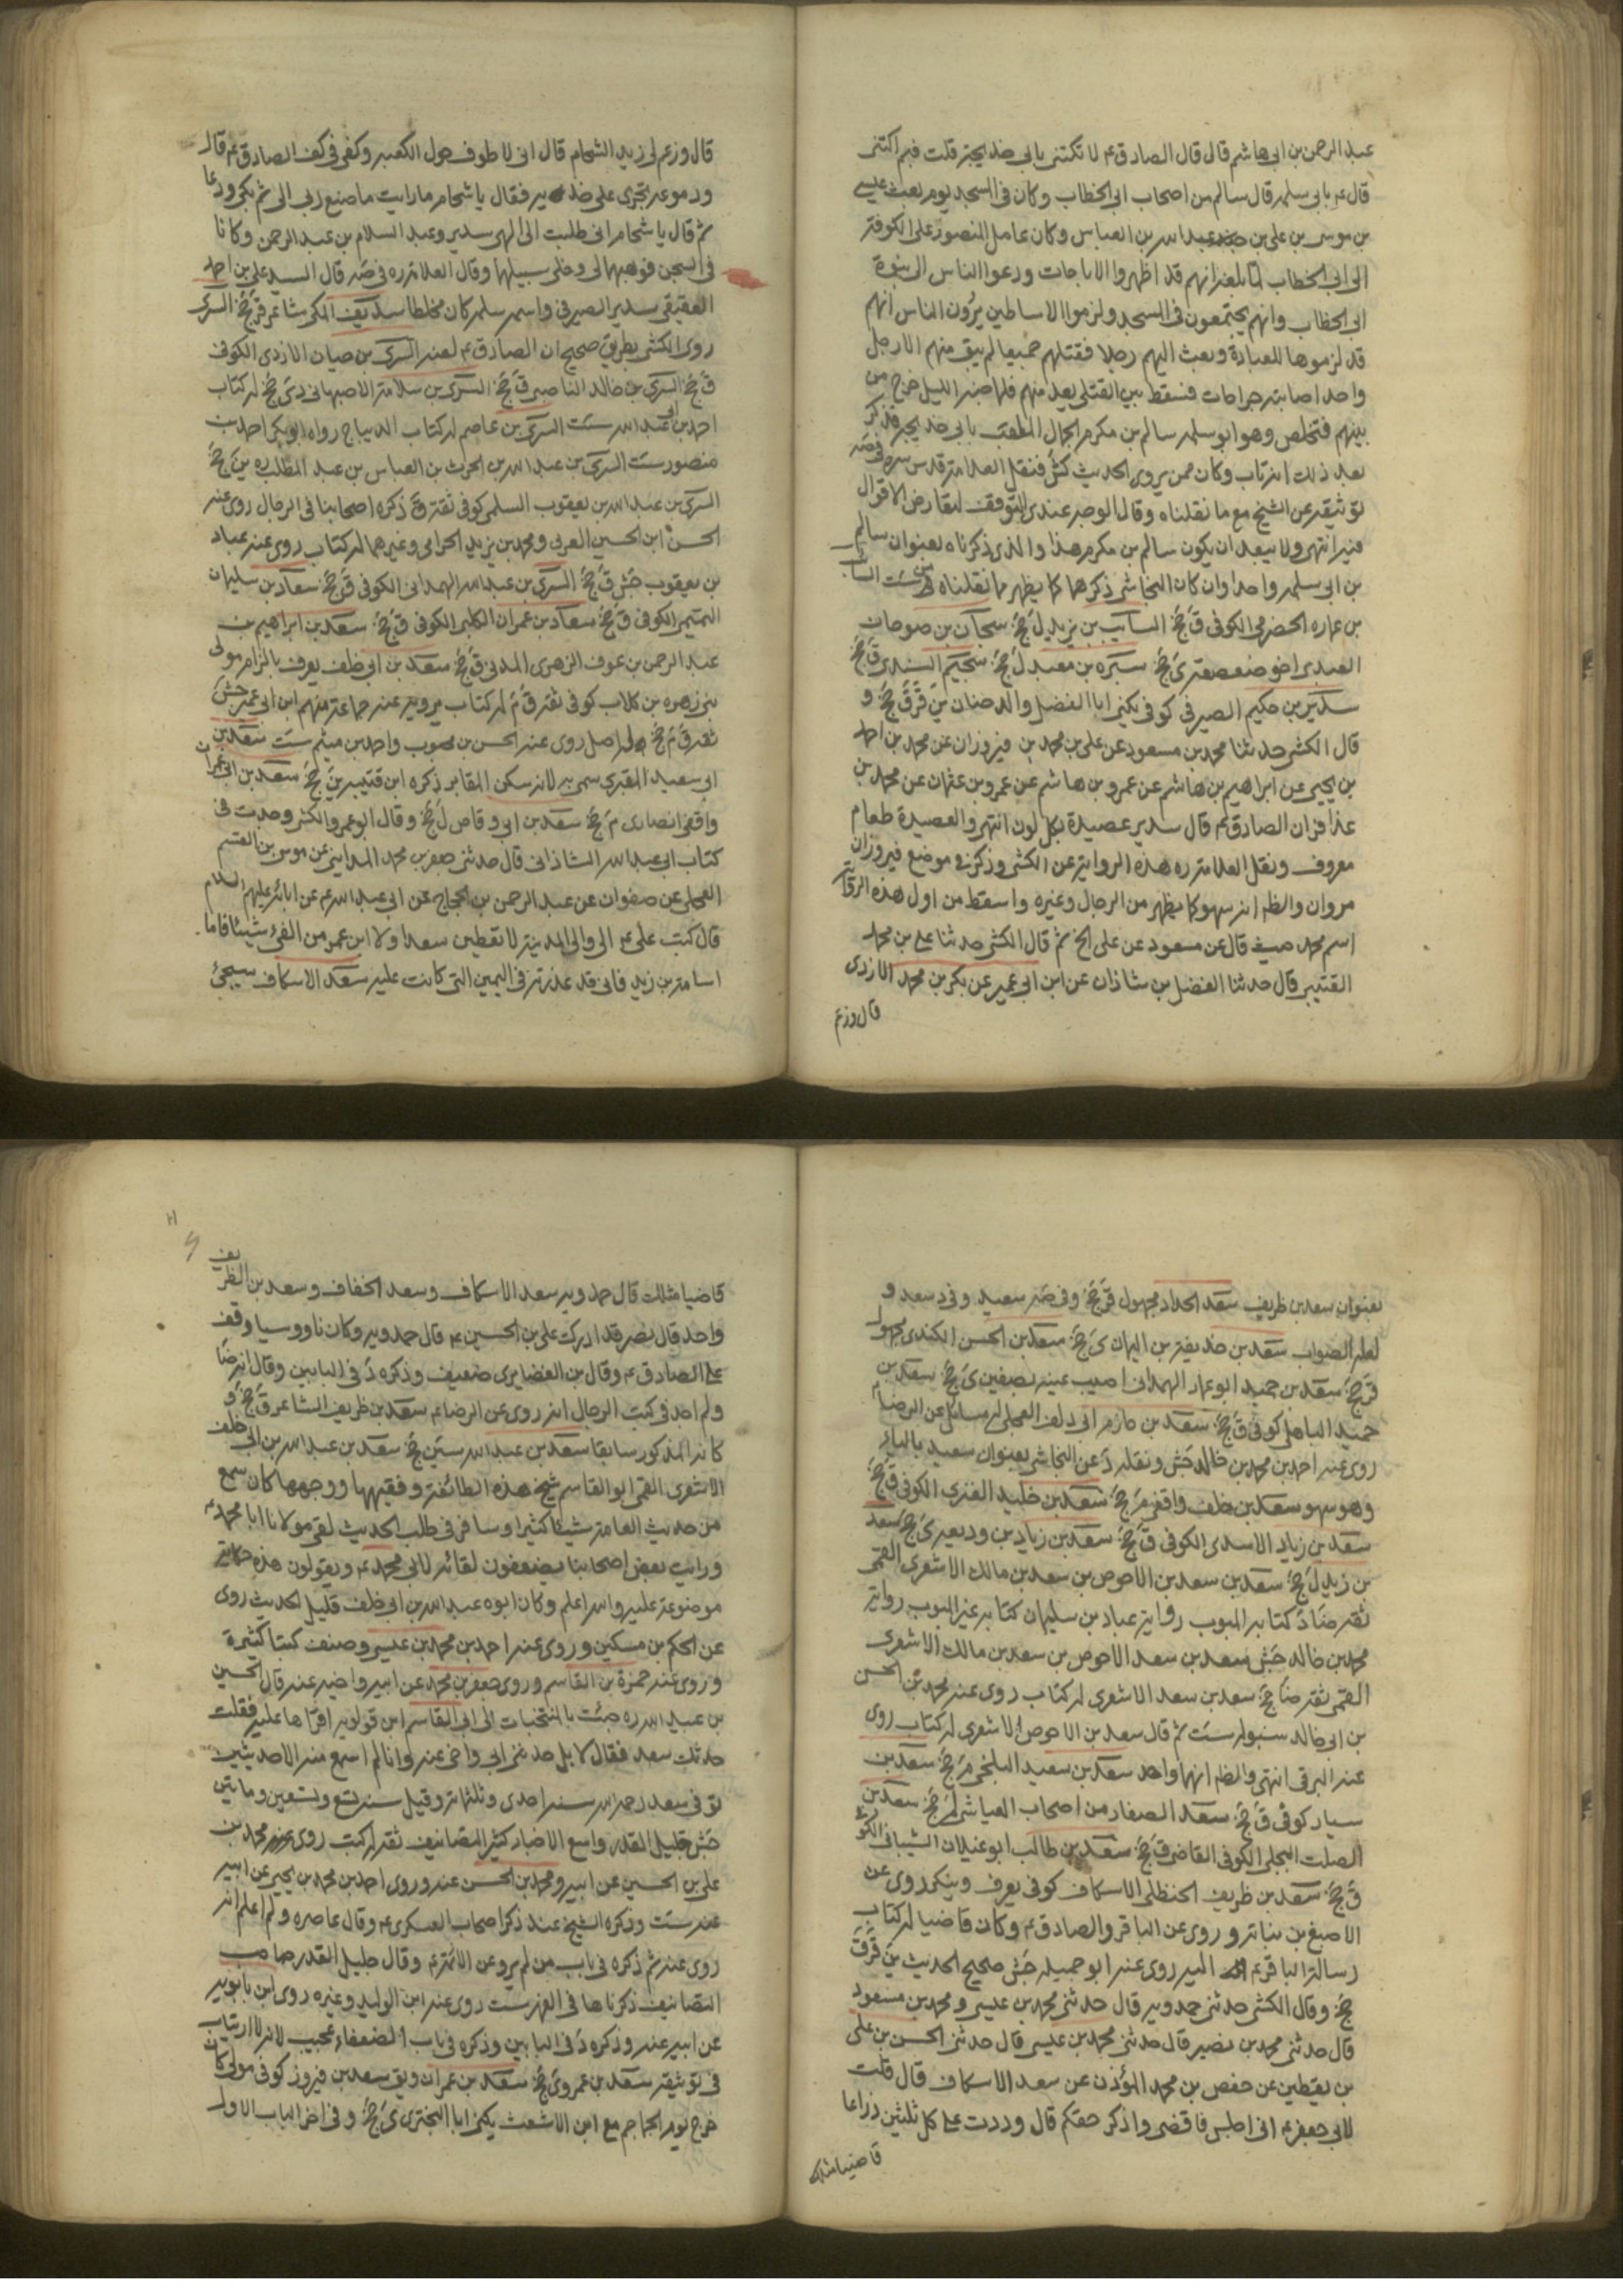 عبد الرحمن بن ابى هاشم قال قال الصادق ع لا تكتنى بابى خديجة قلت فبم اكتنى
قال ع بابى سلمه قال سالم من اصحاب ابى الخطاب وكان فى المسجد يوم بعث عيسى
بن موسى بن على بن عبد الله بن العباس وكان عامل المنصور على الكوفة
الى ابى الخطاب لما بلغه انهم قد اظهروا الاباحات ودعوا الناس الى نبوة
ابى الخطاب وانهم يجتمعون فى المسجد ولزموا الاساطين يرون الناس انهم
قد لزموها للعبادة وبعث اليهم رجلا فقتلهم جميعا لم يبق منهم الا رجل
واحد اصابته جراحات فسقط بين القتلى يعد منهم فلما جنه الليل خرج من
بينهم فتخلص وهو ابو سلمه سالم بن مكرم الجمال الملقب بابى خديجه فذكر
بعد ذلك انه تاب وكان ممن يروى الحديث كش فنقل العلامة قدس سره فى صه
توثيقه عن الشيخ مع ما نقلناه وقال الوجه عندى التوقف لتعارض الاقوال
فيه انتهى ولا يبعد ان يكون سالم بن مكرم هذا والذى ذكرناه بعنوان سالم
بن ابى سلمه واحدا وان كان النجاشى ذكرهما كما يظهر مما نقلناه
بن عماره الحضرمى الكوفى ق جخ السائب بن يزيد ل جخ سجان بن صوحان
العبدى اخو صعصعة ى جخ سبره بن معبد ل جخ سحيم السندى ق جخ
سدير بن حكيم الصيرفى كوفى يكنى ابا الفضل والد حنان ين قر ق جخ و
قال الكشى حدثنا محمد بن مسعود عن على بن محمد بن فيروزان عن محمد بن احمد
بن يحيى عن ابراهيم بن هاشم عن عمرو بن هاشم عن عمرو بن عثمان عن محمد بن
عذافر ان الصادق ع قال سدير عصيدة بكل لون انتهى والعصيدة طعام
معروف ونقل العلامة ره هذه الرواية عن الكشى وذكر فى موضع فيروزان
مروان والظ انه سهو كما يظهر من الرجال وغيره واسقط من اول هذه الرواية
اسم محمد حيث قال عن مسعود عن على الخ ثم قال الكشى حدثنا على بن محمد
القتيبى قال حدثنا الفضل بن شاذان عن ابن ابى عمير عن بكر بن محمد الازدى
قال وزعم
قال وزعم لى زيد الشحام قال انى لاطوف حول الكعبه وكفى فى كف الصادق ع قال
ودموعه تجرى على خديه فقال يا شحام ما رايت ما صنع ربى الى ثم بكى ودعا
ثم قال يا شحام انى طلبت الى الهى سدير وعبد السلام بن عبد الرحمن وكانا
فى السجن فوهبهما لى وخلى سبيلهما وقال العلامة ره فى صه قال السيد على بن احمد
العقيقى سدير الصيرفى واسمه سلمه كان مخلطا سديف المكى شاعر قر جخ السرى
روى الكشى بطريق صحيح ان الصادق ع لعنه السرى بن حيان الازدى الكوفى
ق جخ السرى بن خالد الناصبى ق جخ السرى بن سلامة الاصبهانى دى جخ له كتاب
احمد بن ابى عبد الله ست السرى بن عاصم له كتاب الديباج رواه ابو بكر احمد بن
منصور ست السرى بن عبد الله بن الحرث بن العباس بن عبد المطلب ين جخ
السرى بن عبد الله بن يعقوب السلمى كوفى ثقة ق ذكره اصحابنا فى الرجال روى عنه
الحسن ابن الحسين العرنى ومحمد بن يزيد الحرامى وغيرهما له كتاب روى عنه عباد
بن يعقوب جش ق جخ السرى بن عبد الله الهمدانى الكوفى ق جخ سعاد بن سليمان
التميمى الكوفى ق جخ سعاد بن عمران الكلبى الكوفى ق جخ سعد بن ابراهيم بن
عبد الرحمن بن عوف الزهرى المدنى ق جخ سعد بن ابى خلف يعرف بالزام مولى
بنى زهره بن كلاب كوفى ثقة ق م له كتاب يرويه عنه جماعة منهم ابن ابى عمير جش
ثقة ق م جخ له اصل روى عنه الحسن بن محبوب واحمد بن ميثم ست سعد بن
ابى سعيد المقبرى سمى به لانه سكن المقابر ذكره ابن قتيبه ين جخ سعد بن ابى عمران
واقفى انصارى م جخ سعد بن ابى وقاص ل جخ وقال ابو عمرو الكشى وجدت فى
كتاب ابى عبد الله الشاذانى قال حدثنى جعفر بن محمد المداينى عن موسى بن القسم
العجلى عن صفوان عن عبد الرحمن بن الحجاج عن ابى عبد الله ع عن ابائه عليهم السلام
قال كتب على ع الى والى المدينة لا تعطين سعدا ولا ابن عمر من الفىء شيئا فاما
اسامة بن زيد فانى قد عذرته فى اليمين التى كانت عليه سعد الاسكاف سيجئ
بعنوان سعد بن ظريف سعد الحداد مجهول قر جخ وفى صه سعيد وفى د سعد و
لعله الصواب سعد بن حذيفة بن اليمان ى جخ سعد بن الحسن الكندى مجهول
قر جخ سعد بن حميد ابو عمار الهمدانى اصيب عينه بصفين ى جخ سعد بن
حميد الباهلى كوفى ق جخ سعد بن حازم ابى دلف العجلى له مسائل عن الرضا ع
روى عنه احمد بن محمد بن خالد جش ونقله د عن النجاشى بعنوان سعيد بالياء
وهو سهو سعد بن خلف واقفى م جخ سعد بن خليد الفزى الكوفى ق جخ
سعد بن زياد الاسدى الكوفى ق جخ سعد بن زياد بن وديعه ى جخ سعد
بن زيد ل جخ سعد بن سعد بن الاحوص بن سعد بن مالك الاشعرى القمى
ثقة ضا د كتابه المبوب رواية عباد بن سليمان كتابه غير المبوب رواية
محمد بن خالد جش سعد بن سعد الاحوص بن سعد بن مالك الاشعرى
القمى ثقة ضا جخ سعد بن سعد الاشعرى له كتاب روى عنه محمد بن الحسن
بن ابى خالد سنبوله ست ثم قال سعد بن الاحوص الاشعرى له كتاب روى
عنه البرقى انتهى والظ انهما واحد سعد بن سعيد البلخى م جخ سعد بن
سيار كوفى ق جخ سعد الصفار من اصحاب العياشى لم جخ سعد بن
الصلت البجلى الكوفى القاضى ق جخ سعد بن طالب ابو غيلان الشيبانى الكوفى
ق جخ سعد بن ظريف الحنظلى الاسكاف كوفى يعرف وينكر روى عن
الاصبغ بن نباتة وروى عن الباقر والصادق ع وكان قاضيا له كتاب
رسالة الباقر ع اليه روى عنه ابو جميله جش صحيح الحديث ين قر ق
جخ وقال الكشى حدثنى حمدويه قال حدثنى محمد بن عيسى ومحمد بن مسعود
قال حدثنى محمد بن نصير قال حدثنى محمد بن عيسى قال حدثنى الحسن بن على
بن يقطين عن حفص بن محمد المؤذن عن سعد الاسكاف قال قلت
لابى جعفر ع انى اجلس فاقضى واذكر حقكم قال وددت على كل ثلثين ذراعا
قاضيا مثلك
قاضيا مثلك قال حمدويه سعد الاسكاف وسعد الخفاف وسعد بن الظريف
واحد قال نصر قد ادركت على بن الحسين ع قال حمدويه وكان ناووسيا وقف
على الصادق ع وقال بن الغضايرى ضعيف وذكره د فى البابين وقال انه ضا
ولم اجد فى كتب الرجال انه روى عن الرضا ع سعد بن ظريف الشاعر ق جخ و
كانه المذكور سابقا سعد بن عبد الله سين جخ سعد بن عبد الله بن ابى خلف
الاشعرى القمى ابو القاسم شيخ هذه الطائفة وفقيهها ووجهها كان سمع
من حديث العامة شيئا كثيرا وسافر فى طلب الحديث لقى مولانا ابا محمد ع
ورايت بعض اصحابنا يضعفون لقائه لابى محمد ع ويقولون هذه حكاية
موضوعة عليه والله اعلم وكان ابوه عبد الله بن ابى خلف قليل الحديث روى
عن الحكم بن مسكين وروى عنه احمد بن محمد بن عيسى وصنف كتبا كثيرة
وروى عنه حمزة بن القاسم وروى جعفر بن محمد عن ابيه واخيه عنه قال الحسين
بن عبيد الله ره جئت بالمنتخبات الى ابى القاسم ابن قولويه اقراها عليه فقلت
حدثك سعد فقال لا بل حدثنى ابى واخى عنه وانا لم اسمع منه الا حديثين
توفى سعد رحمه الله سنه احدى وثلثمائة وقيل سنه تسع وتسعين ومايتين
جش جليل القدر واسع الاخبار كثير التصانيف ثقة له كتب روى عنه محمد بن
على بن الحسين عن ابيه ومحمد بن الحسن عنه وروى احمد بن محمد بن يحيى عن ابيه
عنه ست وذكره الشيخ عند ذكر اصحاب العسكرى ع وقال عاصره ولم اعلم انه
روى عنه ثم ذكره فى باب من لم يرو عن الائمة ع وقال جليل القدر صاحب
التصانيف ذكرناها فى الفهرست روى عنه ابن الوليد وغيره روى ابن بابويه
عن ابيه عنه وذكره د فى البابين وذكره فى باب الضعفاء عجيب لانه لا ارتياب
فى توثيقه سعد بن عمرو ى جخ سعد بن عمران ويق سعد بن فيروز كوفى مولى كان
خرج يوم الجماجم مع ابن الاشعث يكنى ابا البخترى ى جخ وفى اخر الباب الاول